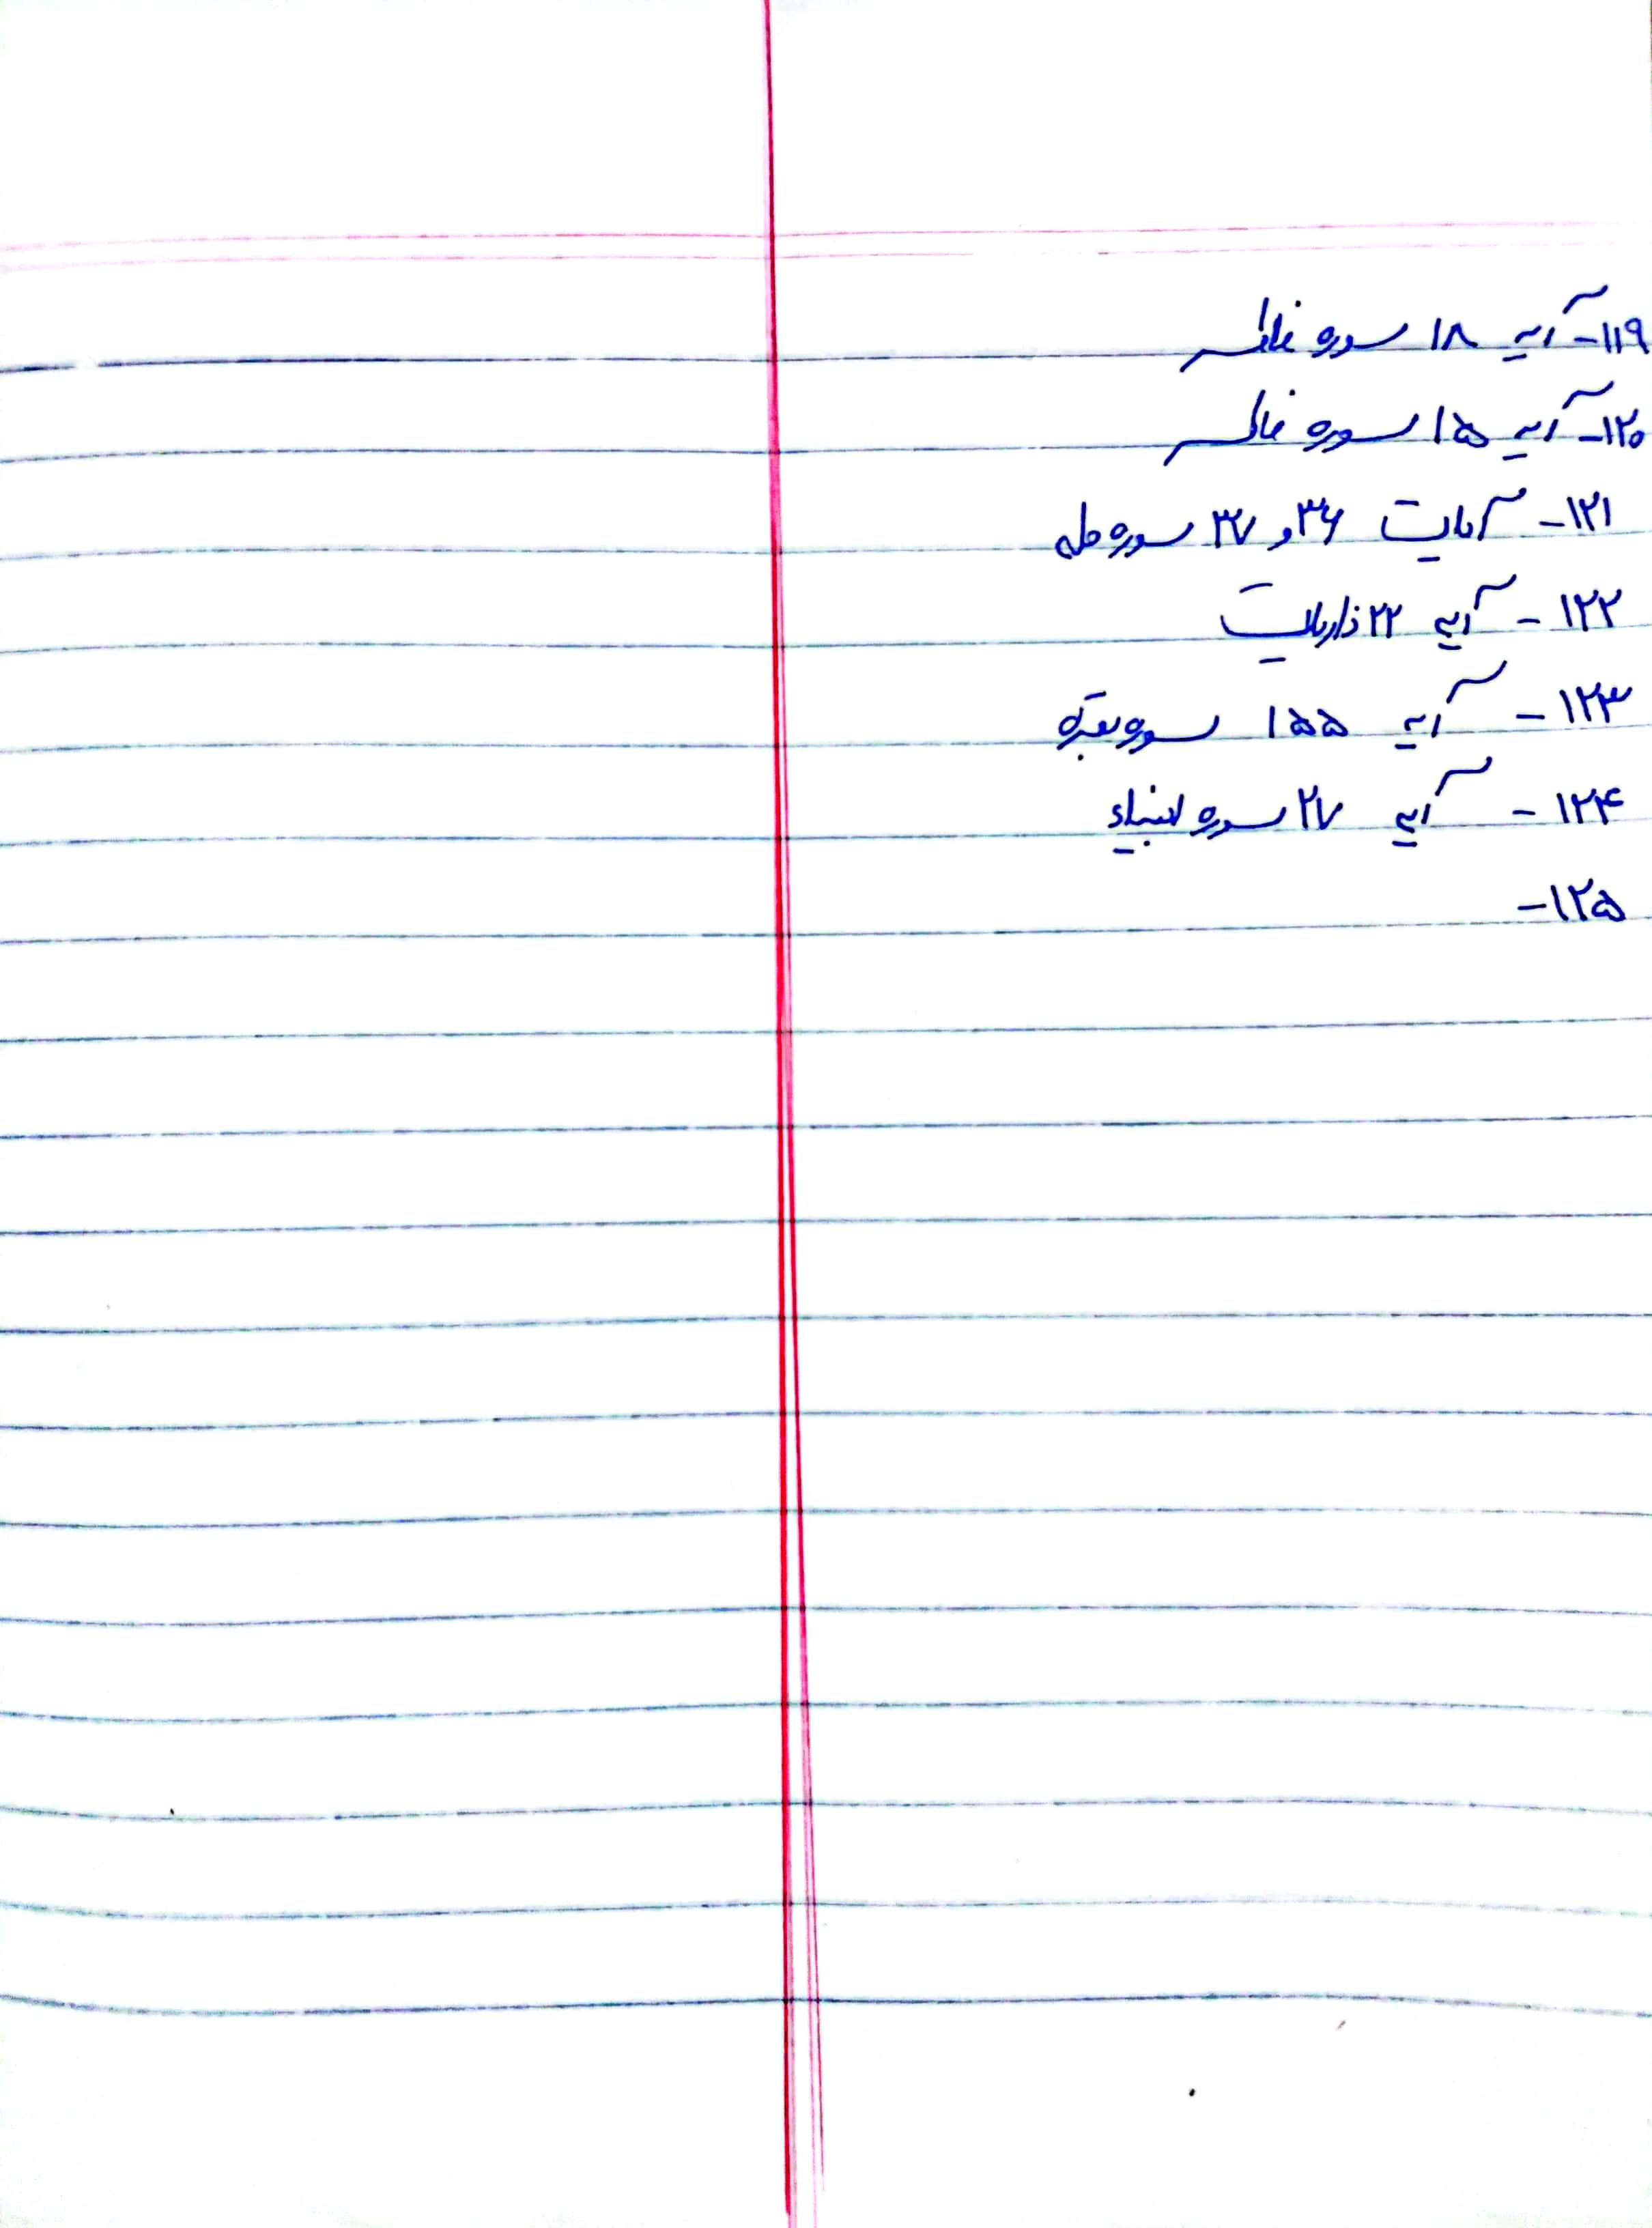 ۱۱۹- آیه ۱۸ سوره فاطر
۱۲۰- آیه ۱۵ سوره فاطر
۱۲۱- آیات ۳۶ و ۳۷ سوره طه
۱۲۲- آیه ۲۲ ذاریات
۱۲۳- آیه ۱۵۵ سوره بقره
۱۲۴- آیه ۲۷ سوره انبیاء
۱۲۵-